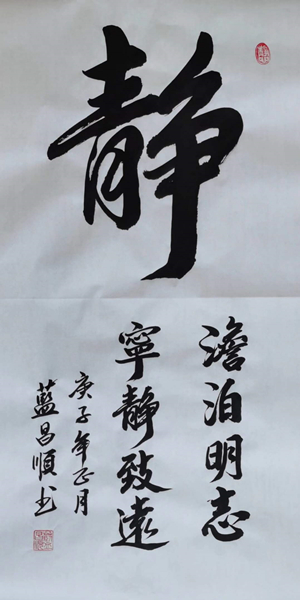 静
澹泊明志
寧静致遠
庚子年正月
藍昌順书